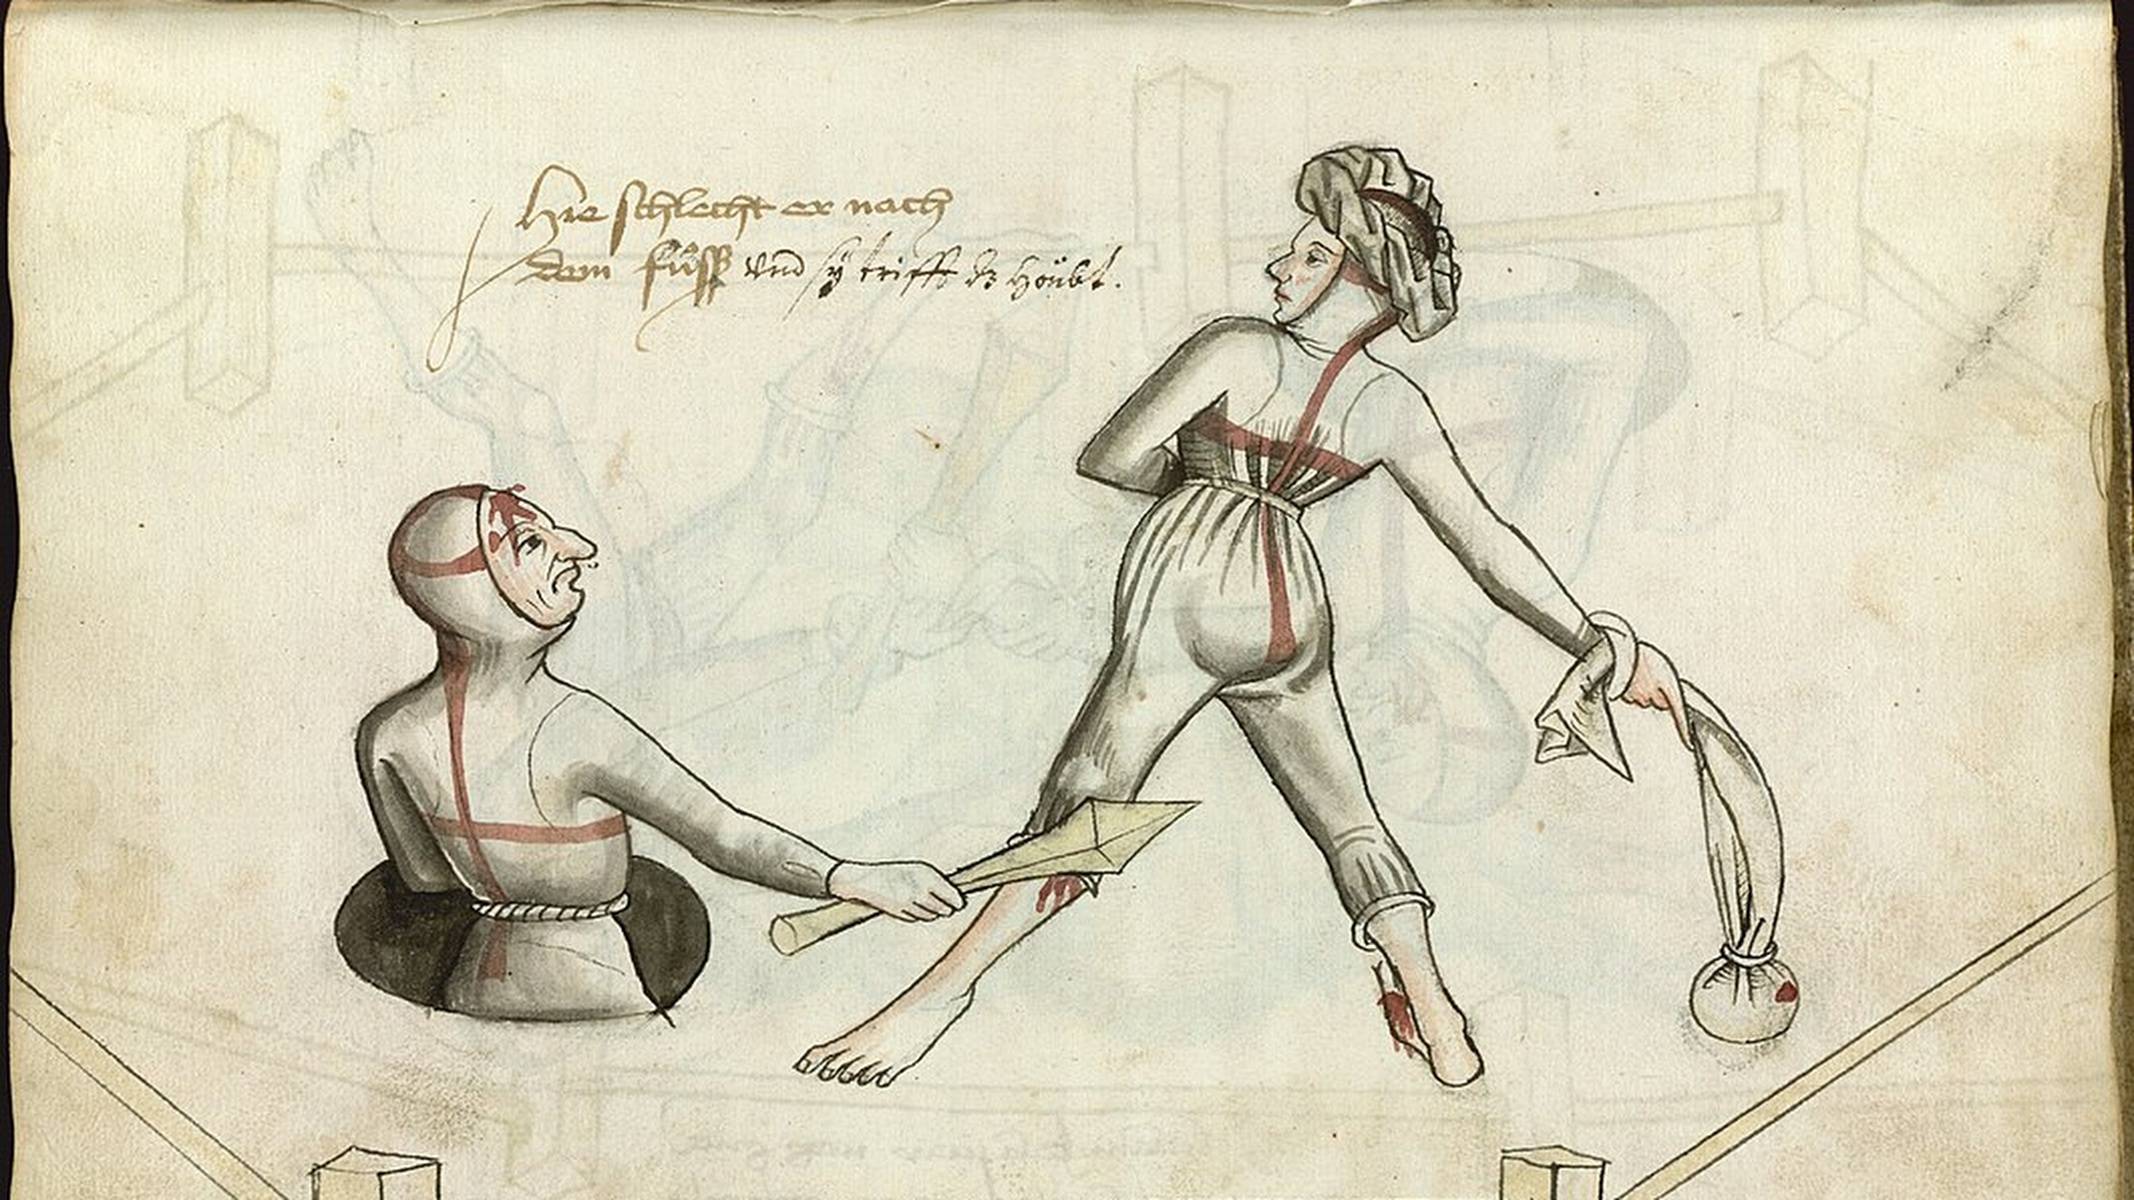 Hie schlecht er nach
dem fuͦsß vnd sy trifft dz hoübt.